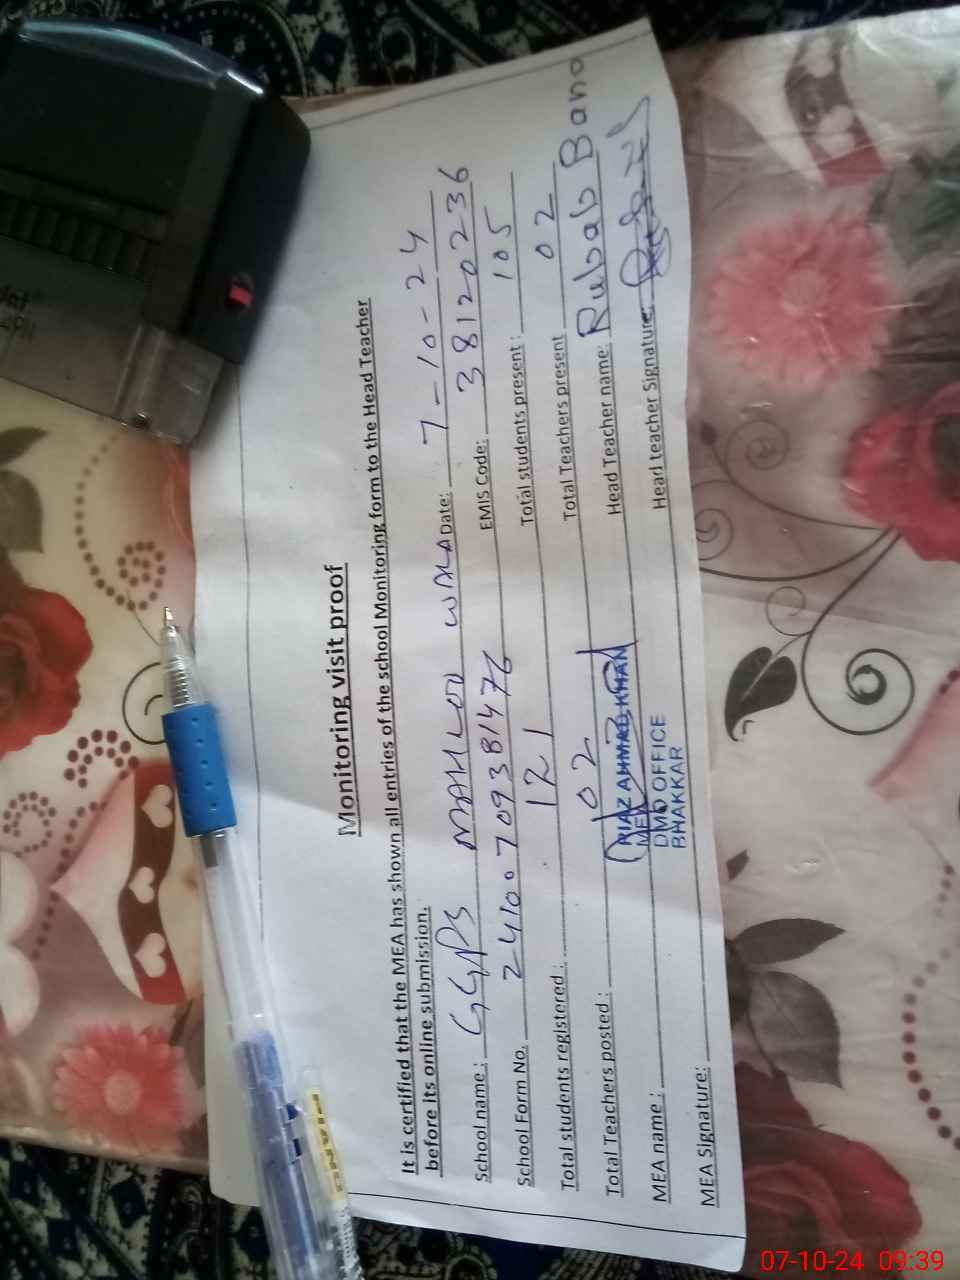 Monitoring visit proof
It is certified that the MEA has shown all entries of the school Monitoring form to the Head Teacher
before its online submission.
School name : GGPS MAHLOO WALA Date: 7-10-24
School Form No. 24100709381476 EMIS Code: 38120236
Total students registered : 121 Total students present : 105
Total Teachers posted : 02 Total Teachers present 02
MEA name : RIAZ AHMAD KHAN Head Teacher name: Rubab Bano
MEA
DMO OFFICE
BHAKKAR
MEA Signature: Head teacher Signature:
PIANO
07-10-24 09:39